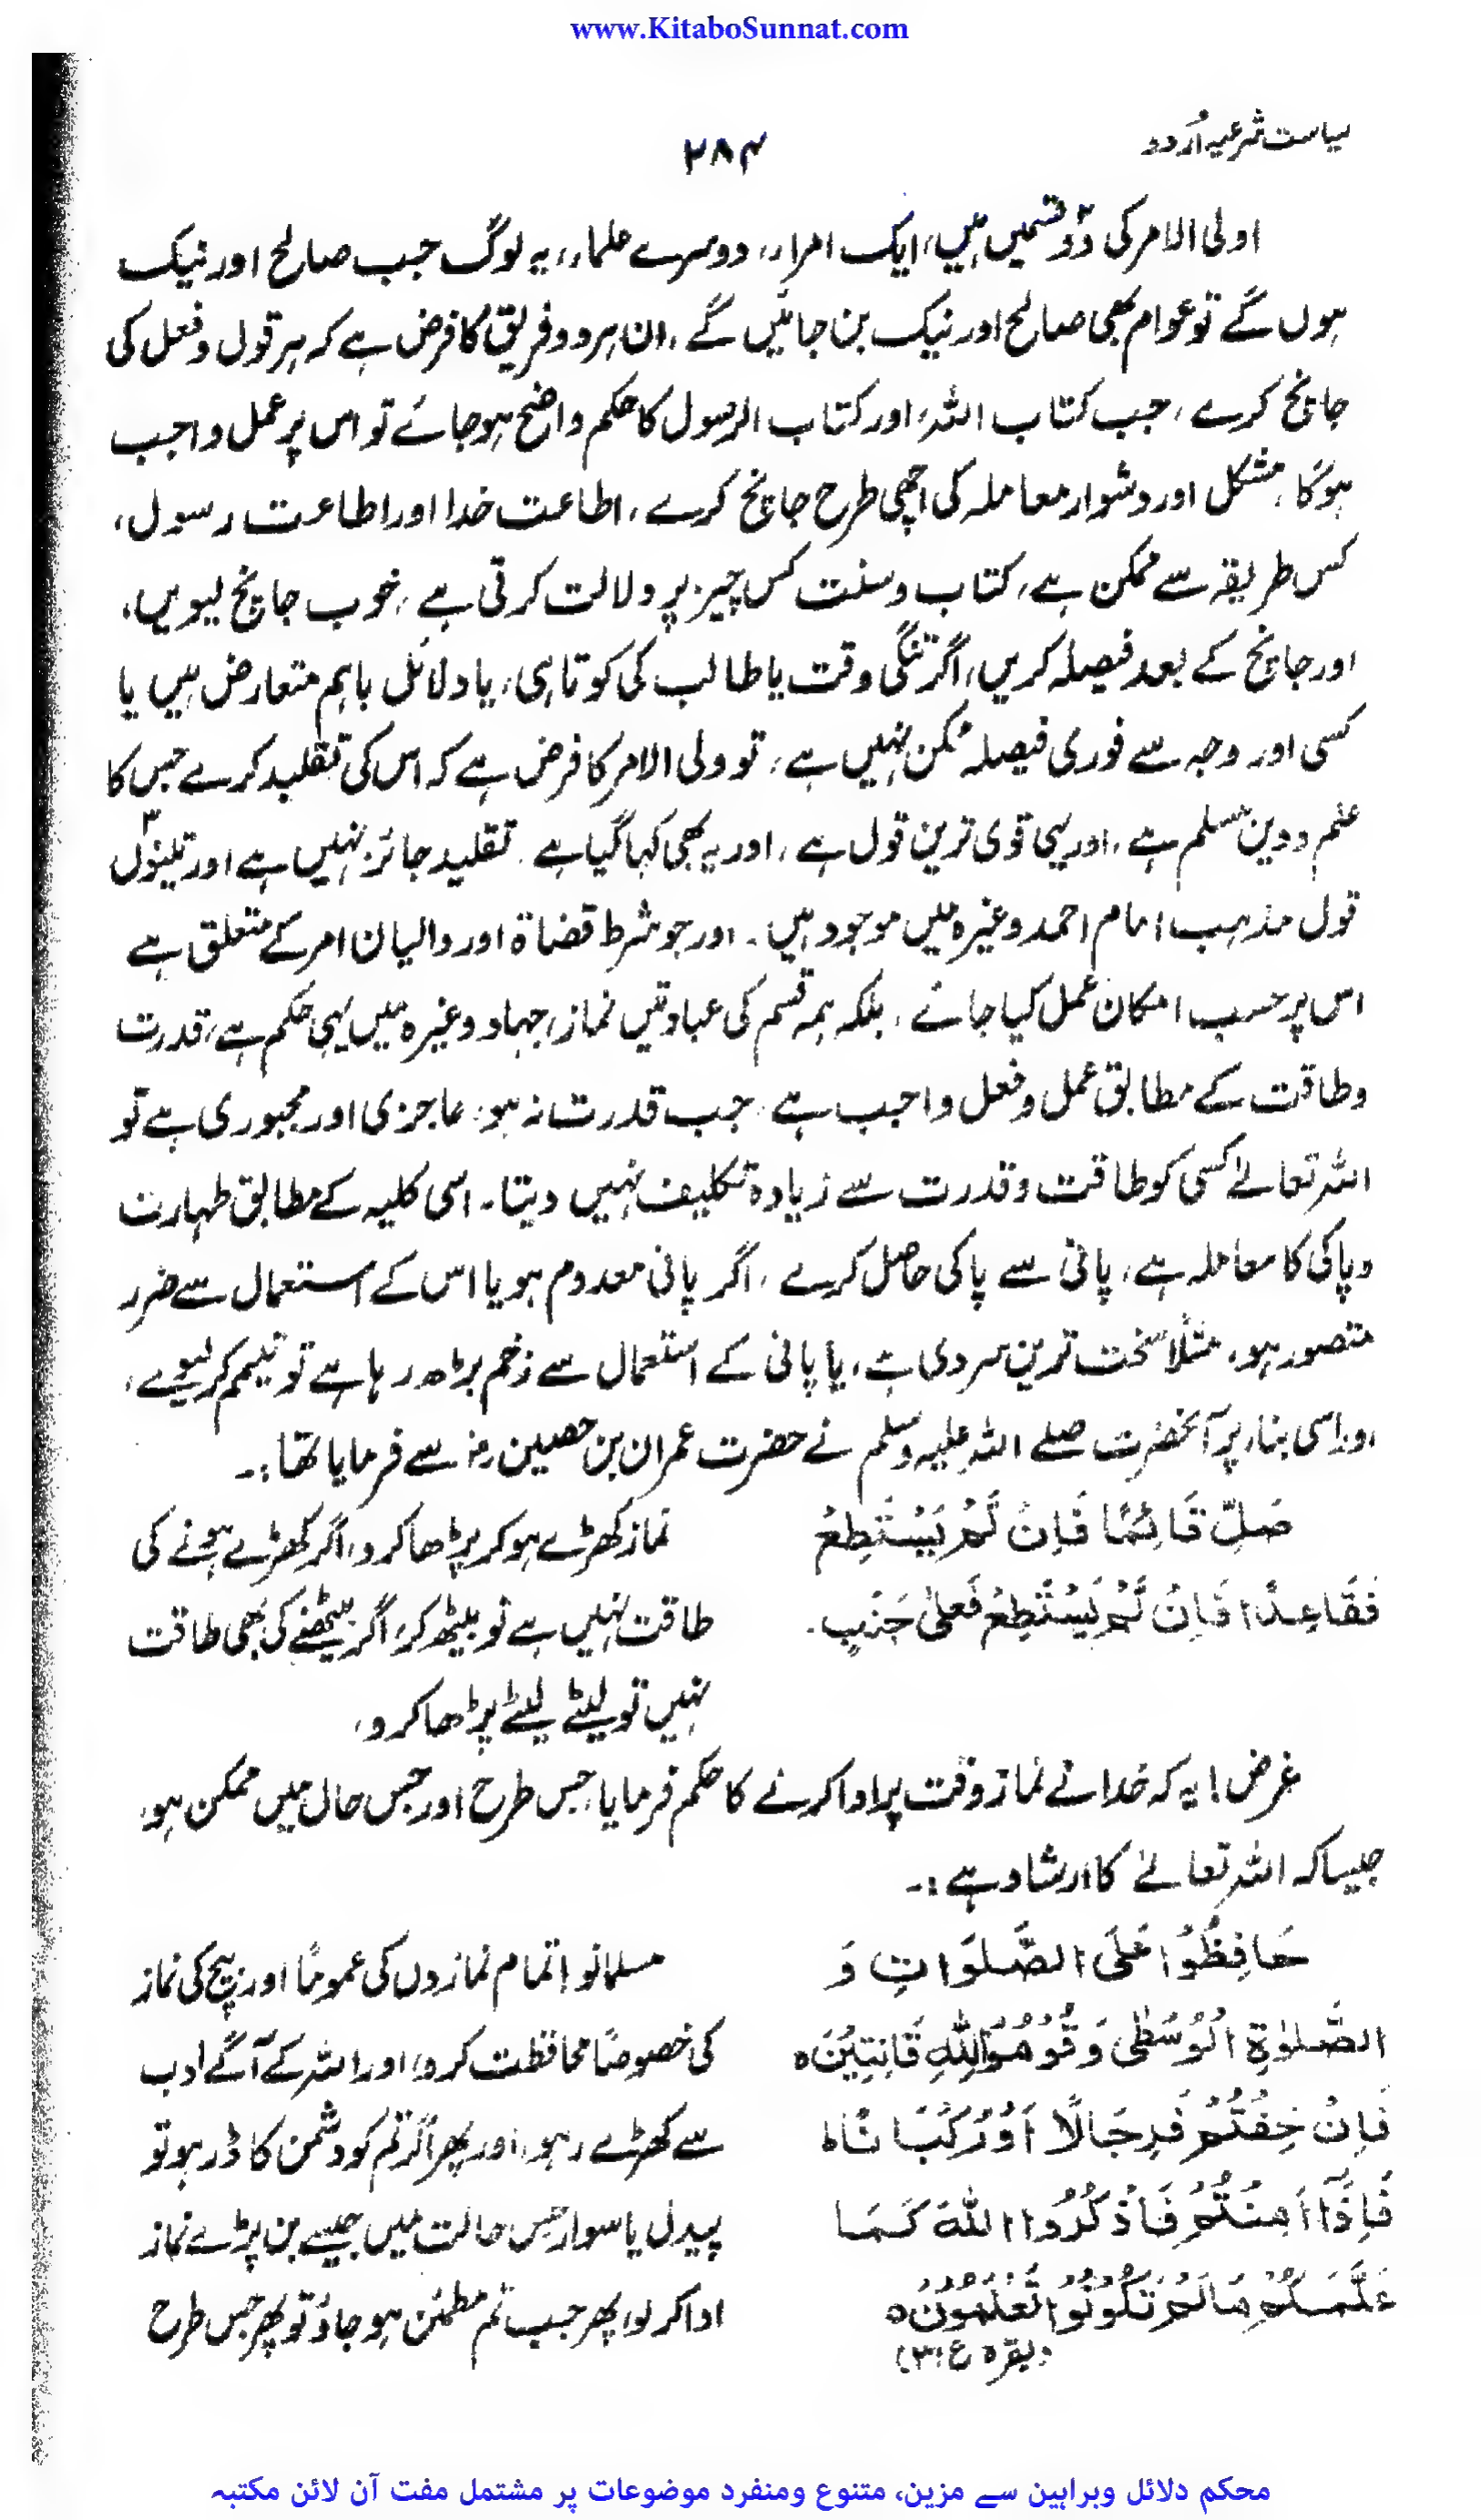 www.KitaboSunnat.com
سیاست شرعیہ اُردو
۲۸۴
اولی الامر کی دو قسمیں ہیں، ایک امراء، دوسرے علماء، یہ لوگ جب صالح اور نیک
ہوں گے تو عوام بھی صالح اور نیک بن جائیں گے، ان ہر دو فریق کا فرض ہے کہ ہر قول وفعل کی
جانچ کرے، جب کتاب اللہ، اور کتاب الرسول کا حکم واضح ہوجائے تو اس پر عمل واجب
ہوگا، مشکل اور دشوار معاملہ کی اچھی طرح جانچ کرے، اطاعت خدا اور اطاعت رسول،
کس طریقہ سے ممکن ہے، کتاب وسنت کس چیز پر دلالت کرتی ہے، خوب جانچ لیویں،
اور جانچ کے بعد فیصلہ کریں، اگر تنگی وقت یا طالب کی کوتاہی، یا دلائل باہم متعارض ہیں یا
کسی اور وجہ سے فوری فیصلہ ممکن نہیں ہے، تو ولی الامر کا فرض ہے کہ اس کی تقلید کرے جس کا
علم ودین مسلم ہے، اور یہی قوی ترین قول ہے، اور یہ بھی کہا گیا ہے۔ تقلید جائز نہیں ہے اور تینوں
قول مذہب امام احمد وغیرہ میں موجود ہیں۔ اور جو شرط قضاۃ اور والیان امر کے متعلق ہے
اس پر حسب امکان عمل کیا جائے، بلکہ ہمہ قسم کی عبادتیں نماز، جہاد وغیرہ میں یہی حکم ہے، قدرت
وطاقت کے مطابق عمل وفعل واجب ہے، جب قدرت نہ ہو، عاجزی اور مجبوری ہے تو
اللہ تعالےٰ کسی کو طاقت وقدرت سے زیادہ تکلیف نہیں دیتا۔ اسی کلیہ کے مطابق طہارت
وپاکی کا معاملہ ہے، پانی سے پاکی حاصل کرے، اگر پانی معدوم ہو یا اس کے استعمال سے ضرر
متصور ہو، مثلاً سخت ترین سردی ہے، یا پانی کے استعمال سے زخم بڑھ رہا ہے تو تیمم کر لیوے،
اور اسی بناء پر آنحضرت صلے اللہ علیہ وسلم نے حضرت عمران بن حصین رضؓ سے فرمایا تھا:۔
صَلِّ قَائِمًا فَاِنْ لَّمْ يَسْتَطِعْ
فَقَاعِدًا فَاِنْ لَّمْ يَسْتَطِعْ فَعَلٰى جَنْبٍ۔
نماز کھڑے ہو کر پڑھا کرو، اگر کھڑے ہونے کی
طاقت نہیں ہے تو بیٹھ کر، اگر بیٹھنے کی بھی طاقت
نہیں تو لیٹے لیٹے پڑھا کرو،
غرض! یہ کہ خدا نے نماز وقت پر ادا کرنے کا حکم فرمایا، جس طرح اور جس حال میں ممکن ہو،
جیسا کہ اللہ تعالےٰ کا ارشاد ہے:۔
حَافِظُوْا عَلَى الصَّلَوَاتِ وَ
الصَّلٰوةِ الْوُسْطٰى وَقُوْمُوْا لِلّٰهِ قَانِتِيْنَ ہ
فَاِنْ خِفْتُمْ فَرِجَالًا اَوْ رُكْبَانًا ط
فَاِذَآ اَمِنْتُمْ فَاذْكُرُوا اللّٰهَ كَمَا
عَلَّمَكُمْ مَا لَمْ تَكُوْنُوْا تَعْلَمُوْنَ ہ
(بقرہ ع ۳۱)
مسلمانو! تمام نمازوں کی عموماً اور بیچ کی نماز
کی خصوصاً محافظت کرو، اور اللہ کے آگے ادب
سے کھڑے رہو، اور پھر اگر تم کو دشمن کا ڈر ہو تو
پیدل یا سوار جس حالت میں جیسے بن پڑے نماز
ادا کر لو، پھر جب تم مطمئن ہو جاؤ تو پھر جس طرح
محکم دلائل وبراہین سے مزین، متنوع ومنفرد موضوعات پر مشتمل مفت آن لائن مکتبہ